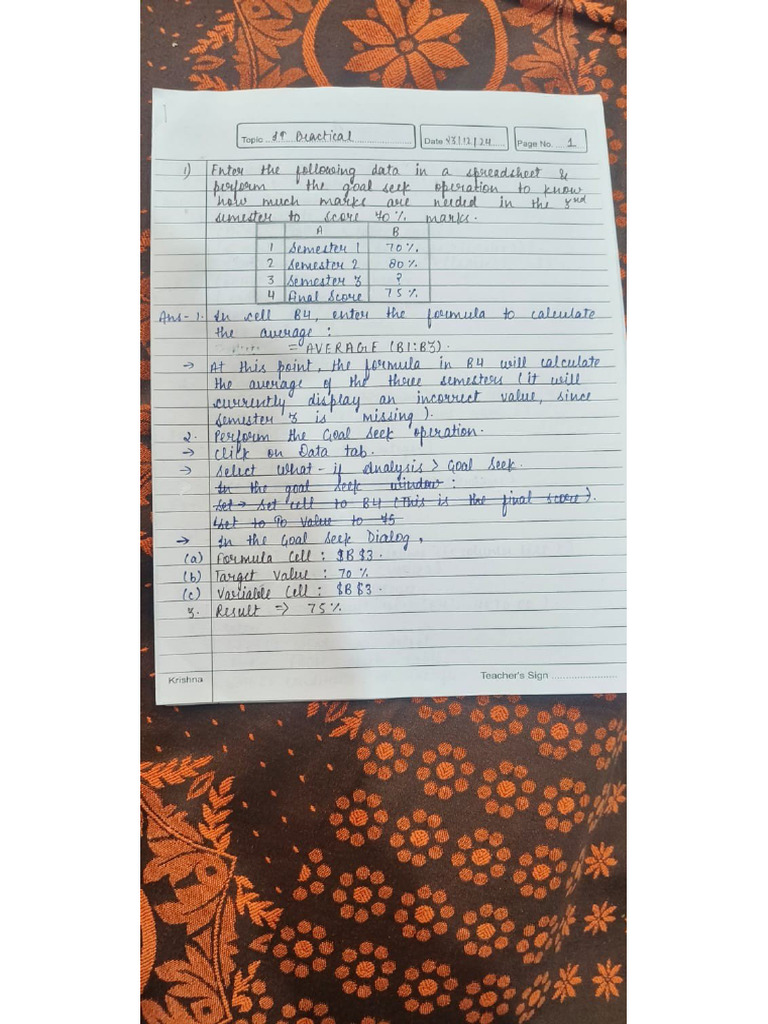 Topic IT Practical Date 13/12/24 Page No. 1
1) Enter the following data in a spreadsheet &
perform the goal seek operation to know
how much marks are needed in the 3rd
semester to score 70% marks.
A B
1 Semester 1 70%
2 Semester 2 80%
3 Semester 3 ?
4 Final Score 75%
Ans-1. In cell B4, enter the formula to calculate
the average :
= AVERAGE (B1:B3).
→ At this point, the formula in B4 will calculate
the average of the three semesters (it will
currently display an incorrect value, since
Semester 3 is missing).
2. Perform the Goal Seek operation.
→ Click on Data tab.
→ Select What-if Analysis > Goal Seek.
In the goal seek window :
Set → Set cell to B4 (This is the final score).
Set to value to 75
→ In the Goal Seek Dialog,
(a) Formula Cell : $B$3.
(b) Target Value : 70%
(c) Variable Cell : $B$3.
3. Result => 75%
Krishna Teacher's Sign